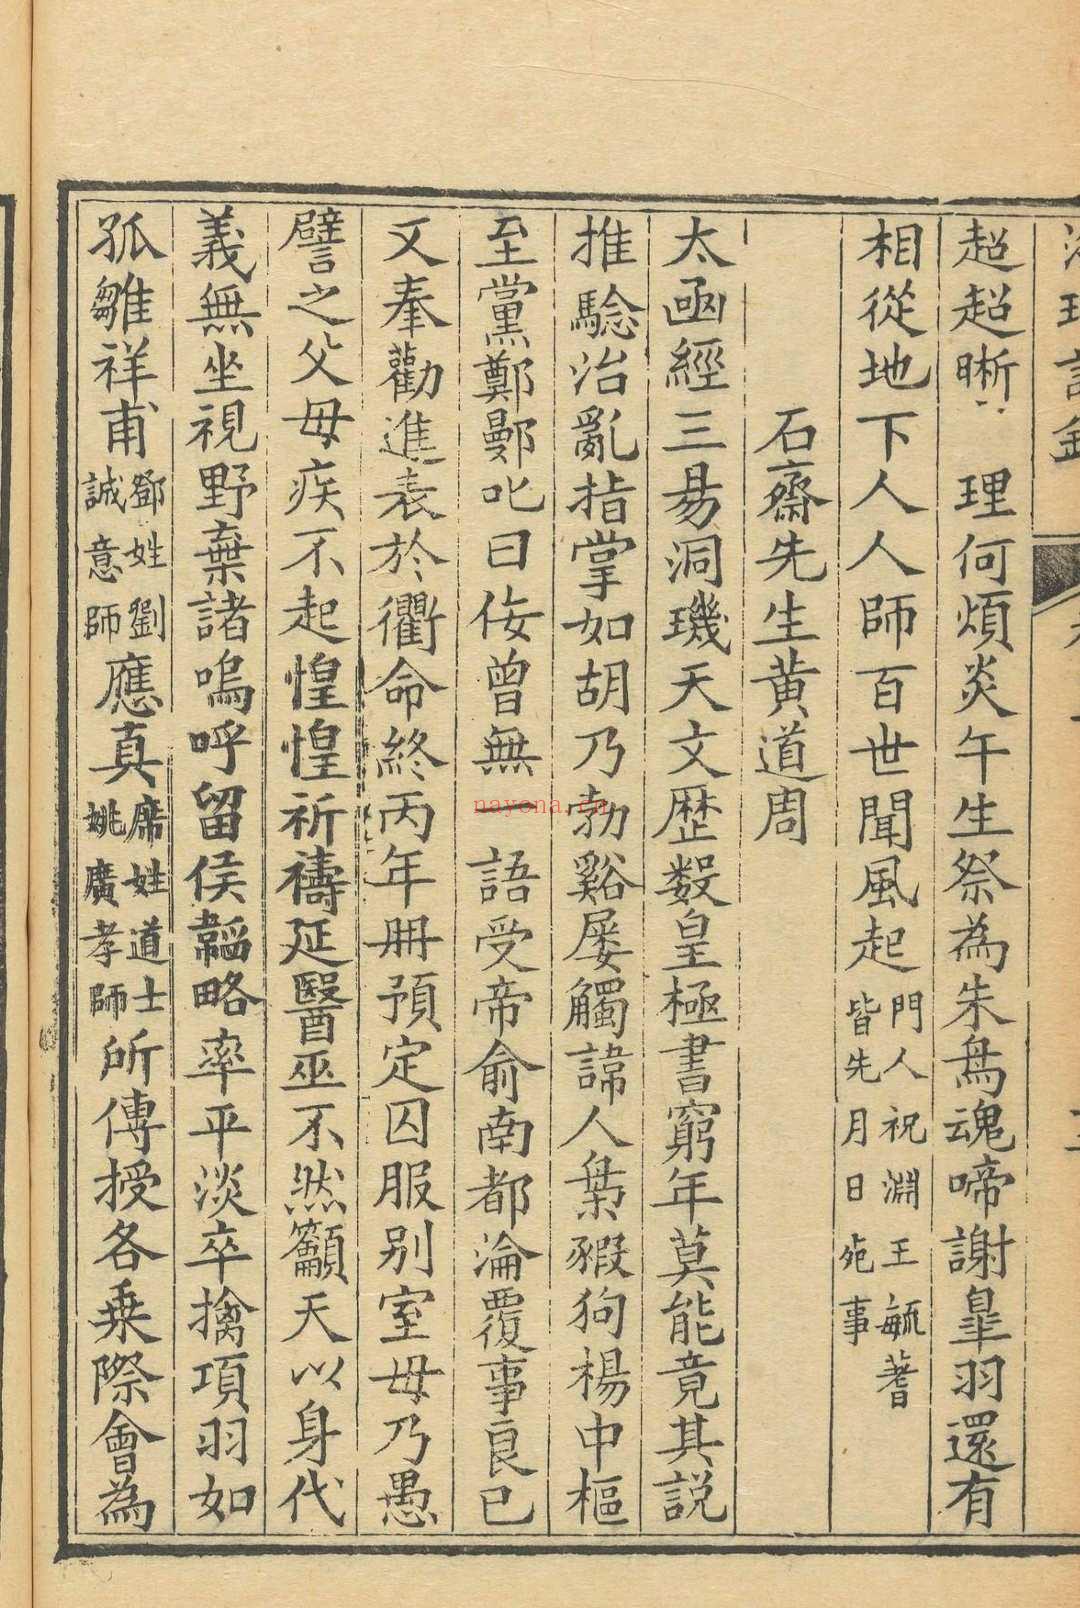 超超晣晣理何煩炎午生祭為朱鳥魂啼謝臯羽還有
相從地下人人師百世聞風起門人祝淵王毓蓍皆先月日死事
石齋先生黃道周
太函經三易洞璣天文歷數皇極書窮年莫能竟其説
推驗治亂指掌如胡乃勃谿屢觸諱人梟豭狗楊中樞
至黨鄭鄤叱曰侫曾無語受帝俞南都淪覆事良已
又奉勸進表於衢命終丙年毌預定囚服别室毋乃愚
譬之父母疾不起惶惶祈禱延醫巫不然籲天以身代
義無坐視野棄諸嗚呼留侯韜略率平淡卒擒項羽如
孤雛祥甫鄧姓劉誠意師應真席姓道士姚廣孝師所傳授各乗際會為
nayona.cn